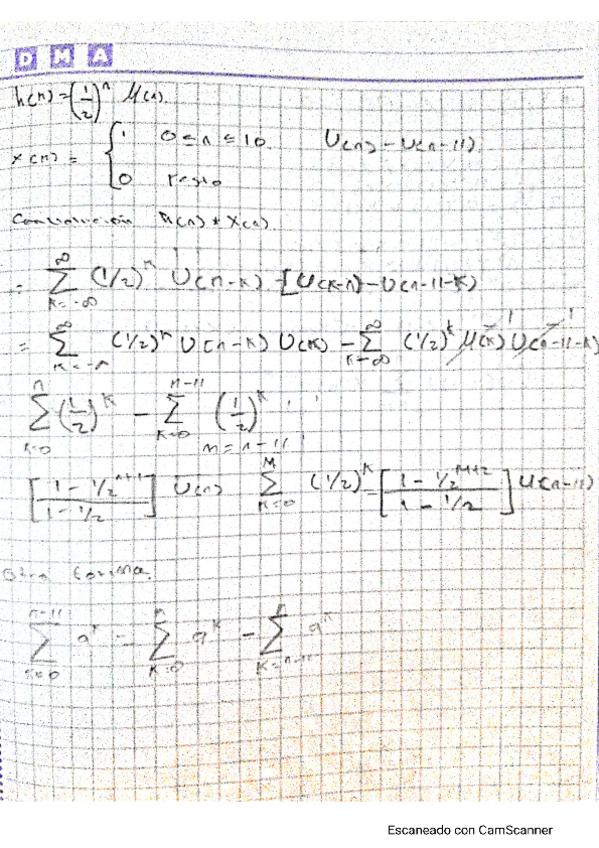 D M A
h(n) = (1/2)^n μ(n).
x(n) = { 1 0 ≤ n ≤ 10. U(n) - U(n-11)
0 resto
Convolución h(n) * x(n).
= ∑_{k=-∞}^{∞} (1/2)^k U(n-k) [U(k-n) - U(n-11-k)
= ∑ (1/2)^k U(n-k) U(k) - ∑_{k=-∞}^{∞} (1/2)^k μ(k) U(n-11-k)
∑_{k=0}^{n} (1/2)^k - ∑_{k=0}^{n-11} (1/2)^k
m = n-11
[(1 - 1/2^{n+1})/(1 - 1/2)] U(n) ∑_{k=0}^{M} (1/2)^k = [(1 - 1/2^{M+2})/(1 - 1/2)] U(n-11)
Otra forma.
∑_{k=0}^{n-11} a^k = ∑_{k=0}^{n} a^k - ∑ a^k
Escaneado con CamScanner